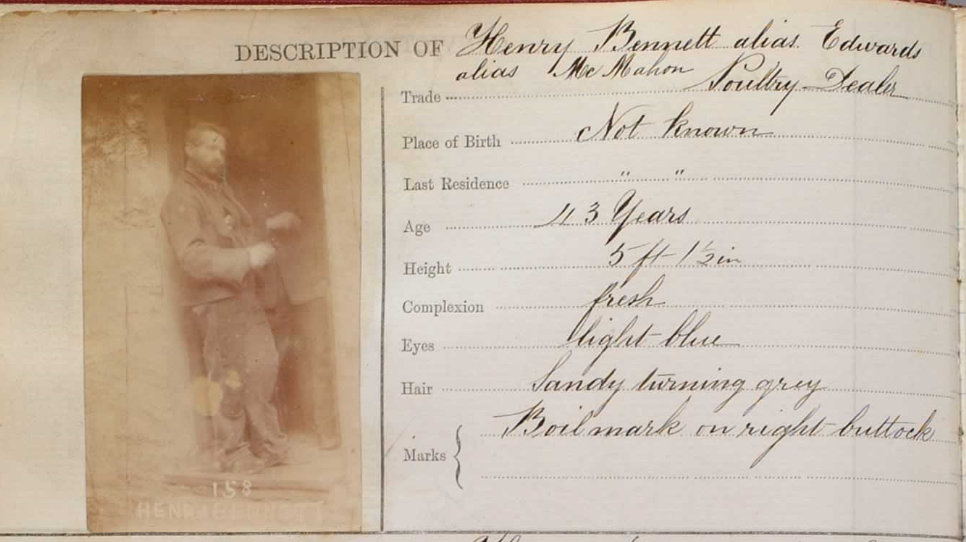 DESCRIPTION OF Henry Bennett alias Edwards
alias McMahon
Trade Poultry Dealer
Place of Birth Not known
Last Residence " "
Age 43 Years
Height 5 ft 1½ in
Complexion fresh
Eyes light blue
Hair Sandy turning grey
Marks { Boil mark on right buttock
158
HENRY BENNETT